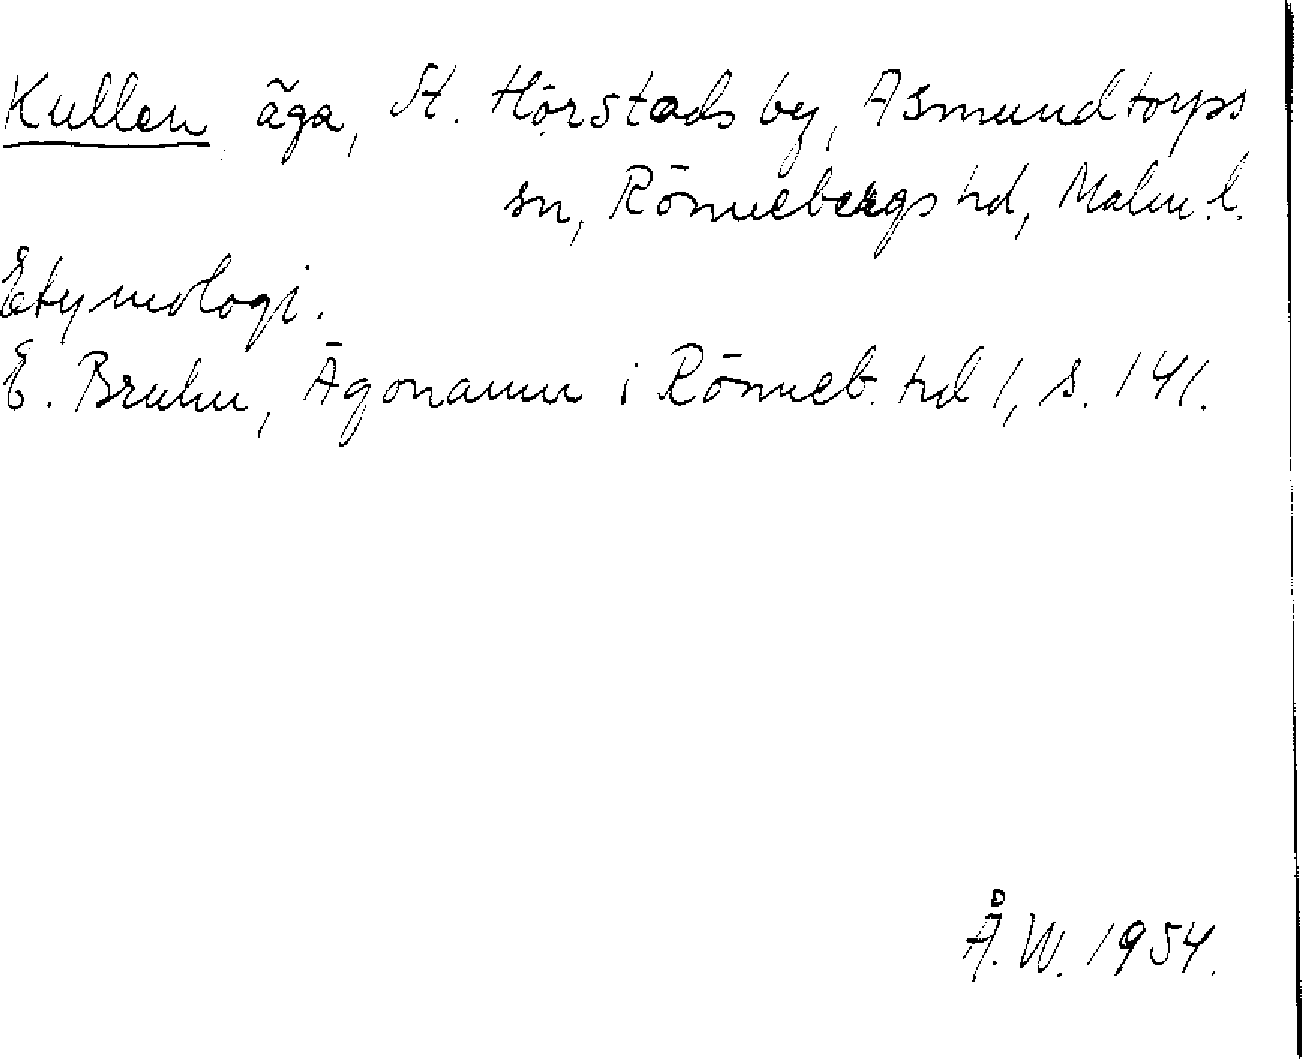 Kullen äga, St. Hörstads by, Asmundtorps
sn, Rönnebergs hd, Malm. l.
Etymologi.
E. Bruhn, Ägonamn i Rönneb. hd 1, s. 141.
Å. W. 1954.